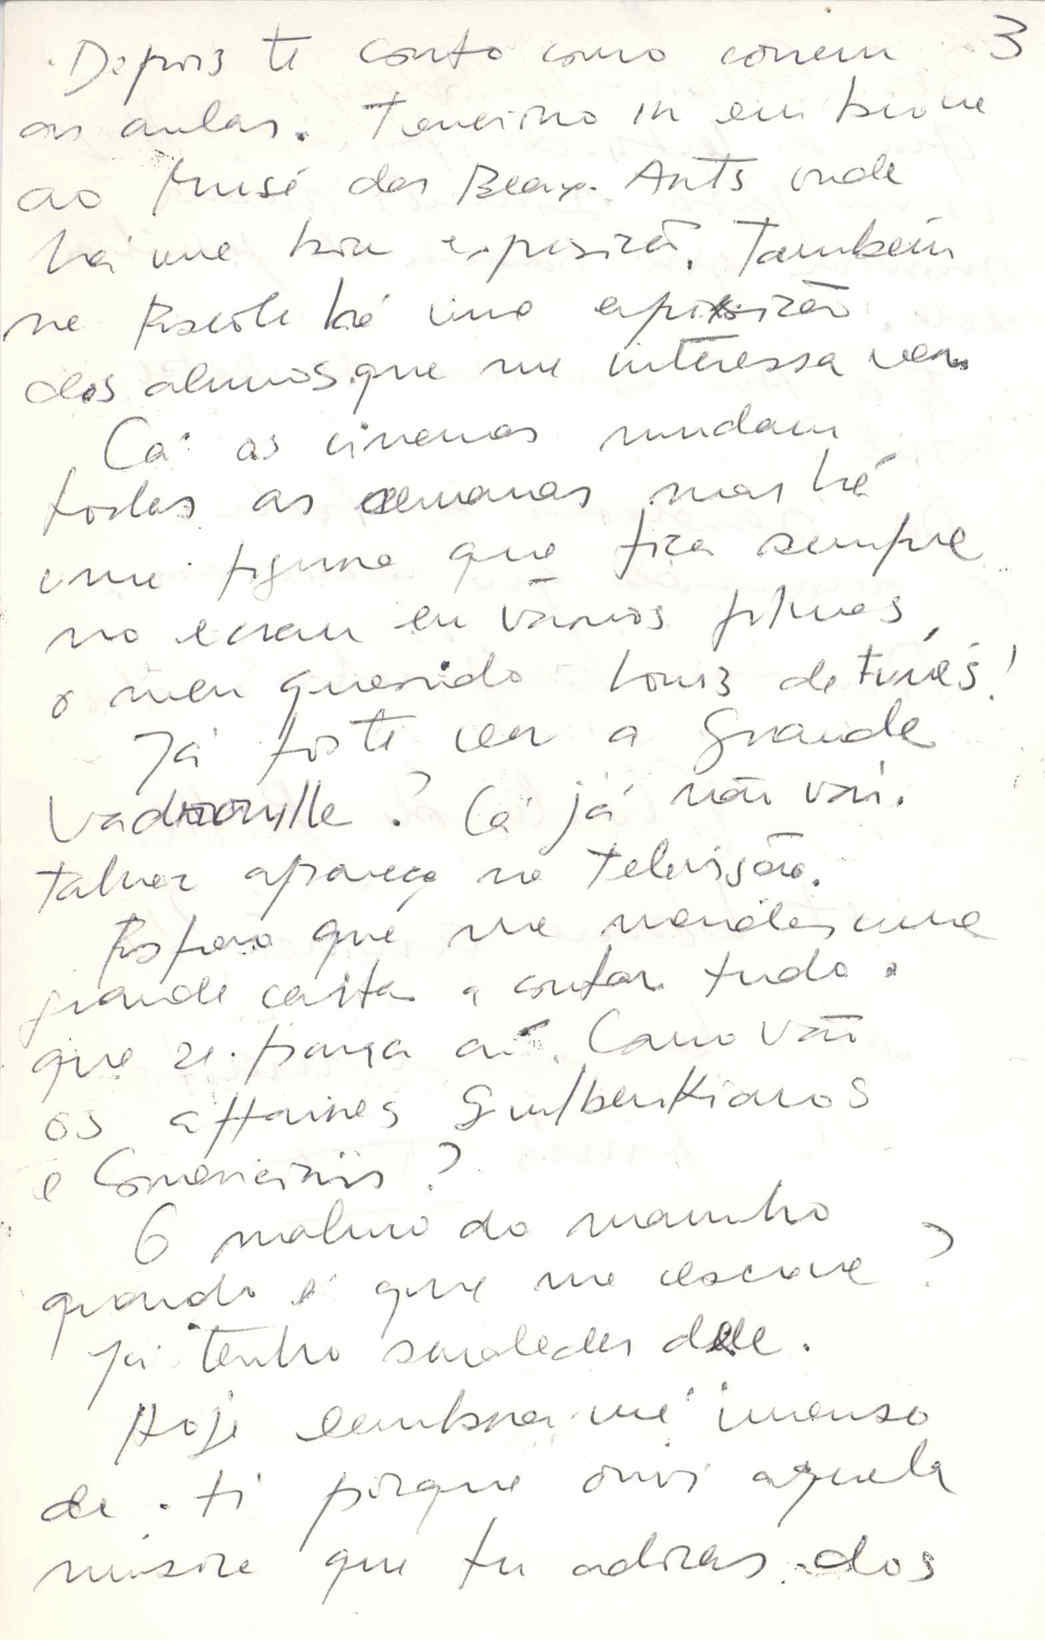 3
Depois te conto como correm
as aulas. Tenciono ir em breve
ao Musé das Beaux-Arts onde
há uma boa exposizão. Também
na Escola há uma exposizão
dos alunos que me interessa ver.
Cá os cinemas mudam
todas as semanas mas há
uma figura que fica sempre
no ecran em vários filmes,
o meu querido Louis de Funés!
Já foste ver a Grande
Vadrouille? Cá já não vai.
talvez apareça na televisão.
Espero que me mandes uma
grande carta a contar tudo o
que se passa aí. Como vão
os affaires Gulbenkianos
e ?
O malvado maninho
quando é que me escreve?
Já tenho saudades dele.
Hoje lembrei-me imenso
de ti porque ouvi aquela
música que tu adoras dos